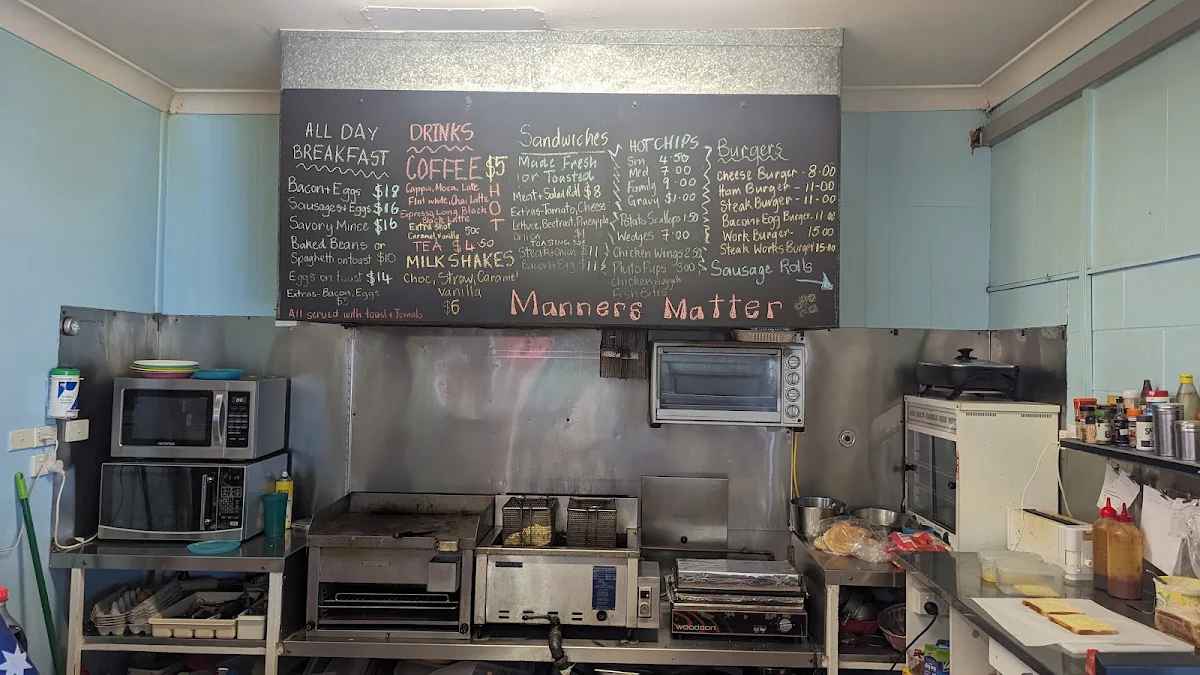 ALL DAY
BREAKFAST
Bacon+Eggs $18
Sausages+Eggs $16
Savory Mince $16
Baked Beans or
Spaghetti on toast $10
Eggs on toast $14
Extras-Bacon, Eggs
$3
All served with toast+Tomato
DRINKS
COFFEE $5
HOT
Cappa, Moca, Latte
Flat white, Chai Latte
Expresso, Long Black
Black Latte
Extra shot
Caramel, Vanilla 50c
TEA $4.50
MILKSHAKES
Choc, Straw, Caramel
Vanilla
$6
Sandwiches
Made Fresh
or Toasted
Meat+Salad Roll $8
Extras-Tomato, Cheese
Lettuce, Beetroot, Pineapple
Onion $1
TOASTING 50c
Steak+onion $11
Bacon+Egg $11
HOT CHIPS
Sm 4.50
Med 7.00
Family 9.00
Gravy $1.00
Potato Scallops 1.50
Wedges 7.00
Chicken Wings 2.50
Pluto Pups 3.00
Chicken nuggets
Burgers
Cheese Burger - 8.00
Ham Burger - 11-00
Steak Burger - 11-00
Bacon+Egg Burger - 11.00
Work Burger - 15.00
Steak Works Burger 15.00
Sausage Rolls
Manners Matter
woodson